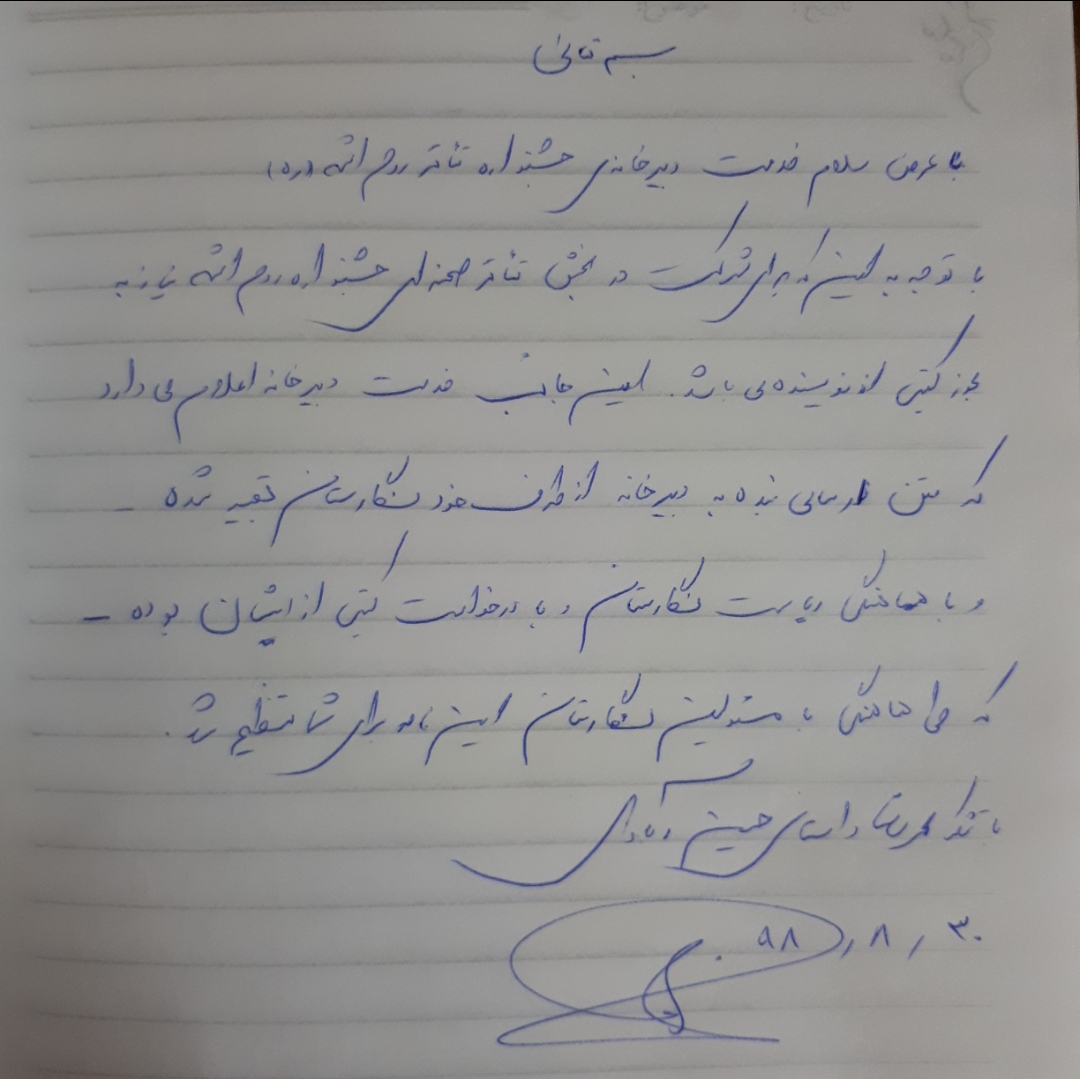 بسم تعالی
با عرض سلام خدمت دبیرخانه‌ی جشنواره تئاتر روح الله (ره)
با توجه به این که برای شرکت در بخش تئاتر صحنه‌ای جشنواره روح الله نیاز به
مجوز کتبی از نویسنده می باشد. این جانب خدمت دبیرخانه اعلام می دارد
که متن ارسالی بنده به دبیرخانه از طرف خود نگارستان تهیه شده
و با هماهنگی ریاست نگارستان و با درخواست کتبی از ایشان بوده
که طی هماهنگی با مسئولین نگارستان این نامه برای شما تنظیم شد.
با تشکر محمدرضا حسین آبادی
۹۸/۸/۳۰